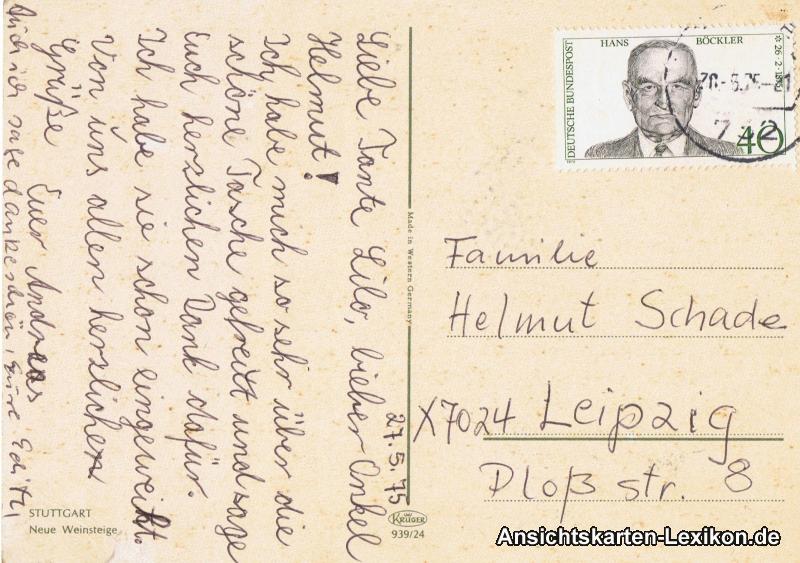 27.5.75
Liebe Tante Lilo, lieber Onkel
Helmut!
Ich habe mich so sehr über die
schöne Tasche gefreut und sage
Euch herzlichen Dank dafür.
Ich habe sie schon eingeweiht.
Von uns allen herzlichen
Grüße Euer Andreas
Auch ich sage dankeschön, Eure Edith
STUTTGART
Neue Weinsteige
Made in Western Germany
KRÜGER
939/24
DEUTSCHE BUNDESPOST
HANS BÖCKLER
40
Familie
Helmut Schade
X7024 Leipzig
Dloß str. 8
Ansichtskarten-Lexikon.de